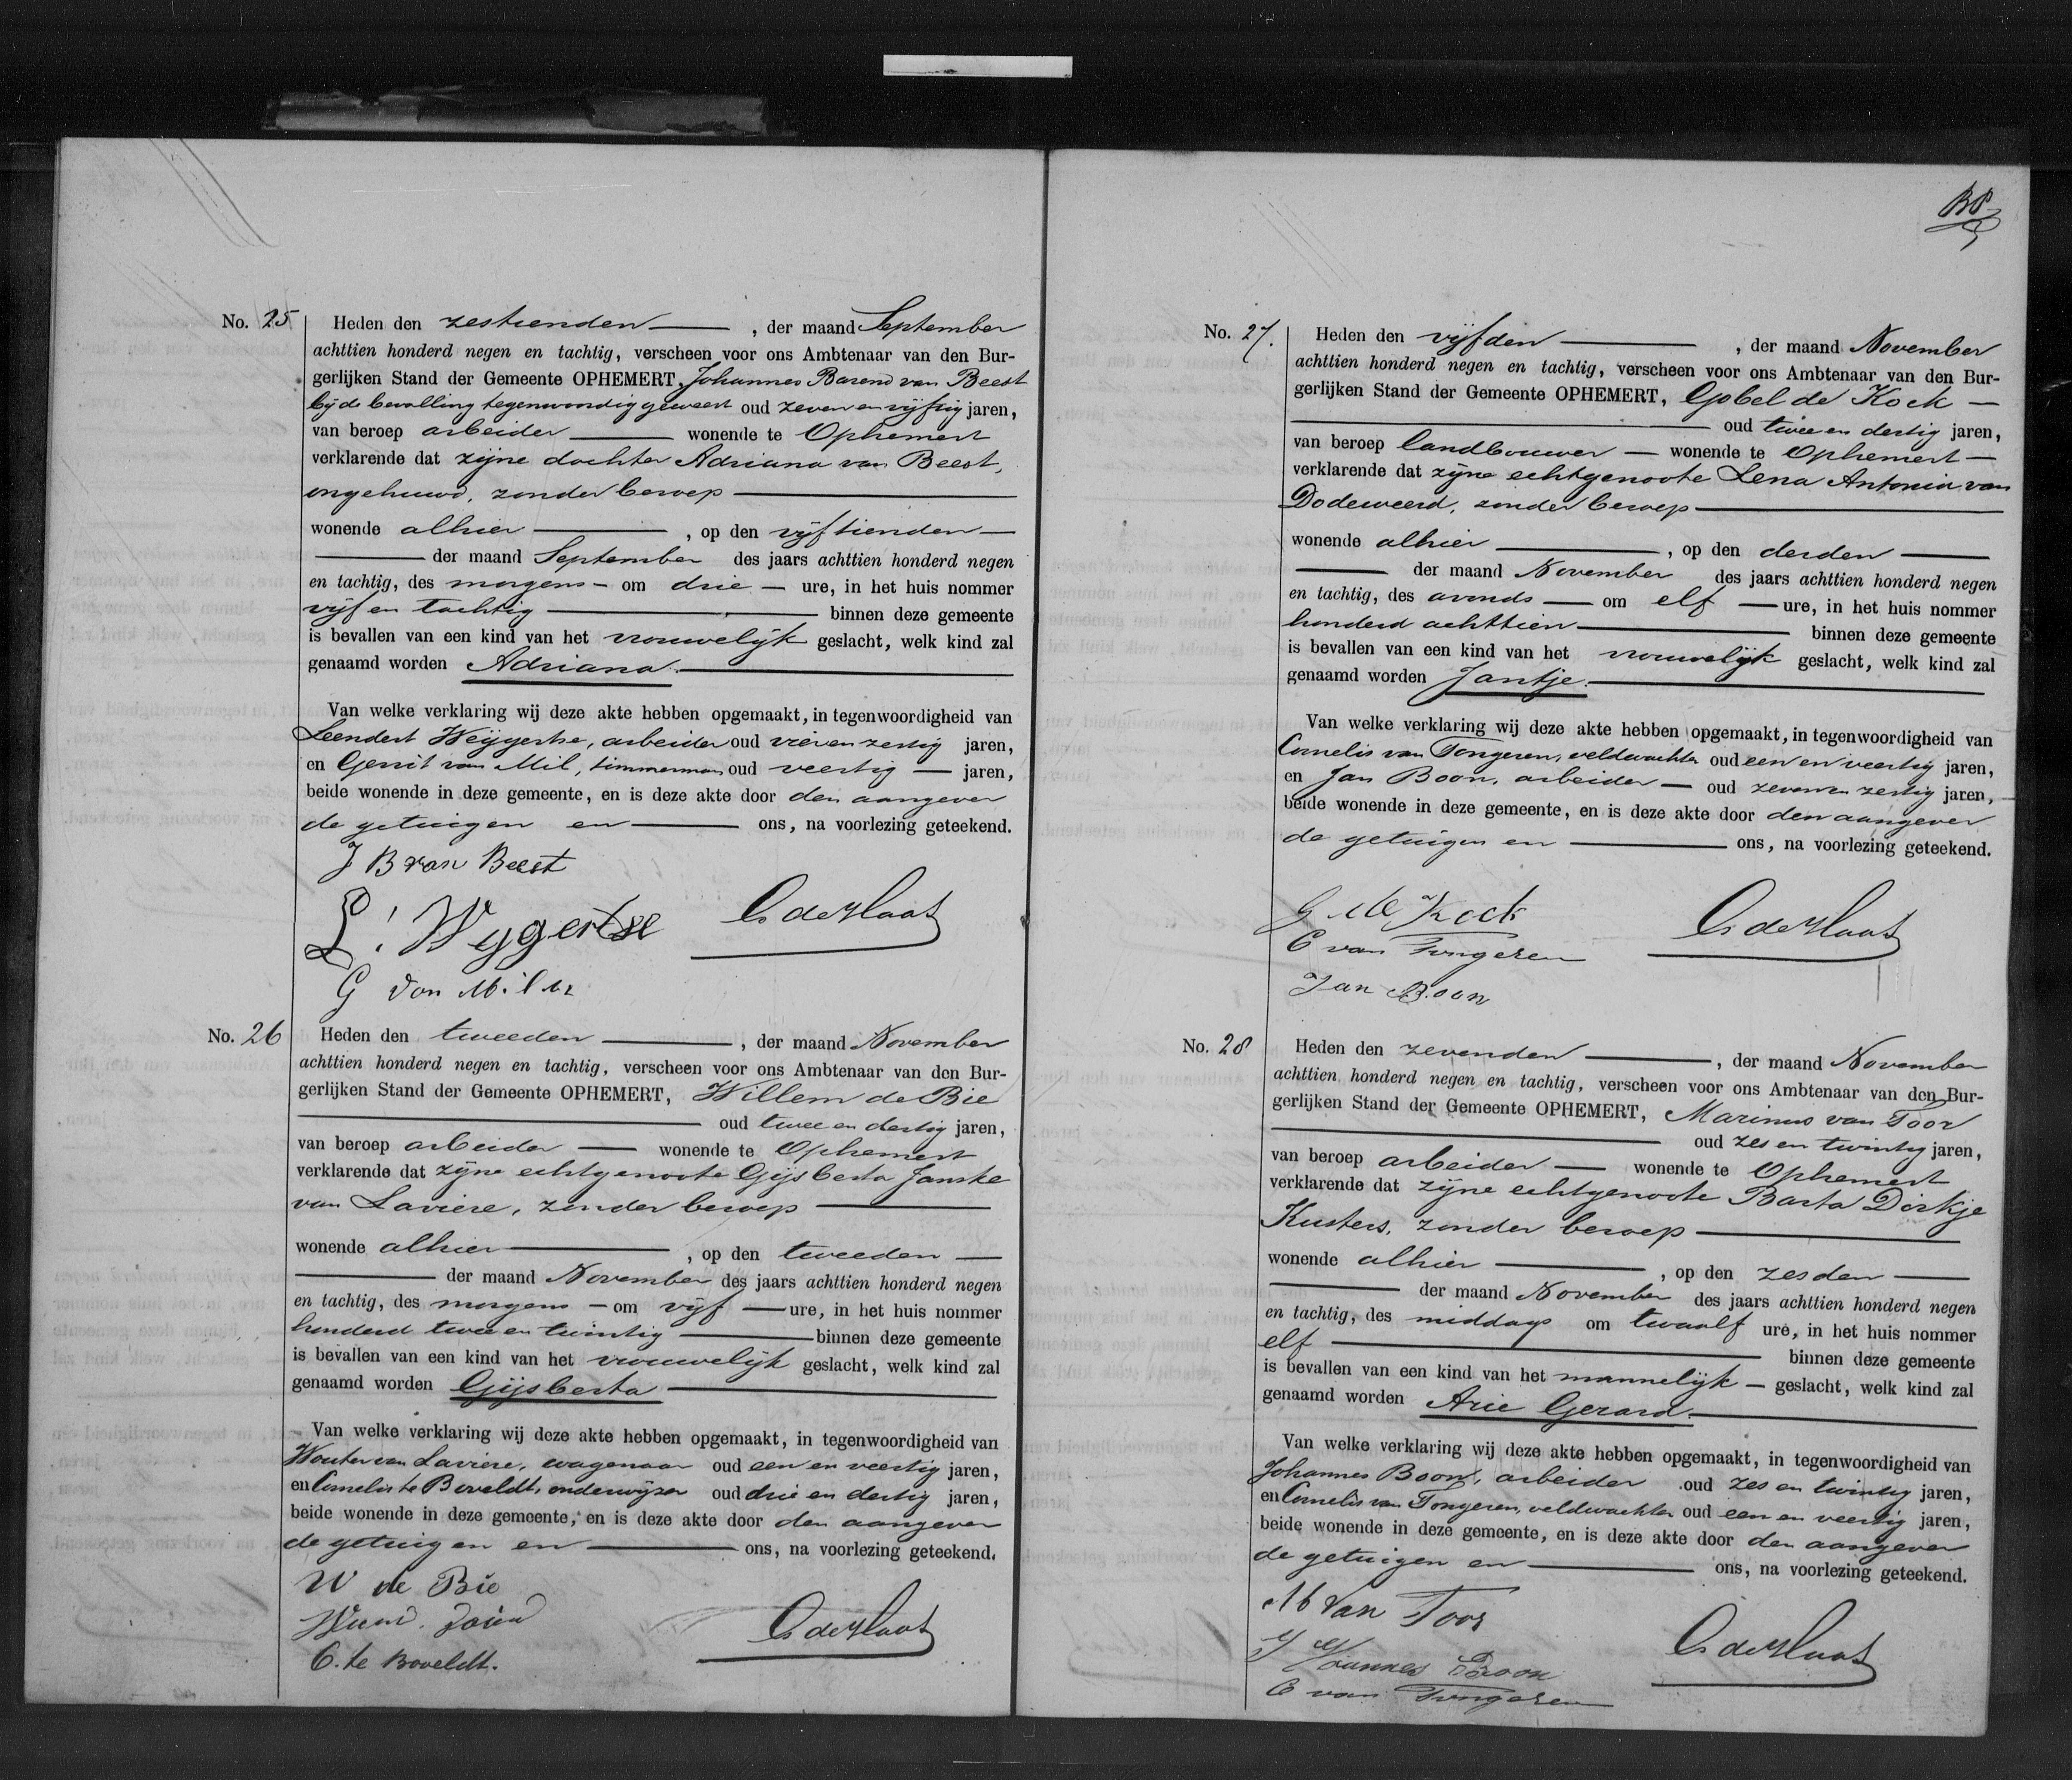 No. 25 Heden den zestienden , der maand September
achttien honderd negen en tachtig, verscheen voor ons Ambtenaar van den Bur-
gerlijken Stand der Gemeente OPHEMERT, Johannes Barend van Beest
bij de bevalling tegenwoordig geweest oud zeven en vijftig jaren,
van beroep arbeider wonende te Ophemert
verklarende dat zijne dochter Adriana van Beest,
ongehuwd, zonder beroep
wonende alhier , op den vijftienden
der maand September des jaars achttien honderd negen
en tachtig, des morgens om drie ure, in het huis nommer
vijf en tachtig binnen deze gemeente
is bevallen van een kind van het vrouwelijk geslacht, welk kind zal
genaamd worden Adriana.
Van welke verklaring wij deze akte hebben opgemaakt, in tegenwoordigheid van
Leendert Weijgertse, arbeider oud vier en zestig jaren,
en Gerrit van Mil, timmerman oud veertig jaren,
beide wonende in deze gemeente, en is deze akte door den aangever
de getuigen en ons, na voorlezing geteekend.
J B van Beest
L. Weygertse
G van Mil
No. 26 Heden den tweeden , der maand November
achttien honderd negen en tachtig, verscheen voor ons Ambtenaar van den Bur-
gerlijken Stand der Gemeente OPHEMERT, Willem de Bie
oud twee en dertig jaren,
van beroep arbeider wonende te Ophemert
verklarende dat zijne echtgenoote Gijsberta Janske
van Laviere, zonder beroep
wonende alhier , op den tweeden
der maand November des jaars achttien honderd negen
en tachtig, des morgens om vijf ure, in het huis nommer
honderd twee en twintig binnen deze gemeente
is bevallen van een kind van het vrouwelijk geslacht, welk kind zal
genaamd worden Gijsberta
Van welke verklaring wij deze akte hebben opgemaakt, in tegenwoordigheid van
Wouter van Laviere, wagenaar oud een en veertig jaren,
en Cornelis te Boveldt, onderwijzer oud drie en dertig jaren,
beide wonende in deze gemeente, en is deze akte door den aangever
de getuigen en ons, na voorlezing geteekend.
W de Bie
C. te Boveldt.
No. 27. Heden den vijfden , der maand November
achttien honderd negen en tachtig, verscheen voor ons Ambtenaar van den Bur-
gerlijken Stand der Gemeente OPHEMERT, Gobel de Kock
oud twee en dertig jaren,
van beroep landbouwer wonende te Ophemert
verklarende dat zijne echtgenoote Lena Antonia van
Dodeweerd, zonder beroep
wonende alhier , op den derden
der maand November des jaars achttien honderd negen
en tachtig, des avonds om elf ure, in het huis nommer
honderd achttien binnen deze gemeente
is bevallen van een kind van het vrouwelijk geslacht, welk kind zal
genaamd worden Jantje.
Van welke verklaring wij deze akte hebben opgemaakt, in tegenwoordigheid van
Cornelis van Tongeren, veldwachter oud een en veertig jaren,
en Jan Boon, arbeider oud zeven en zestig jaren,
beide wonende in deze gemeente, en is deze akte door den aangever
de getuigen en ons, na voorlezing geteekend.
G de Kock
C van Tongeren
Jan Boon
No. 28 Heden den zevenden , der maand November
achttien honderd negen en tachtig, verscheen voor ons Ambtenaar van den Bur-
gerlijken Stand der Gemeente OPHEMERT, Marinus van Toor
oud zes en twintig jaren,
van beroep arbeider wonende te Ophemert
verklarende dat zijne echtgenoote Barta Dirkje
Kusters, zonder beroep
wonende alhier , op den zesden
der maand November des jaars achttien honderd negen
en tachtig, des middags om twaalf ure, in het huis nommer
elf binnen deze gemeente
is bevallen van een kind van het mannelijk geslacht, welk kind zal
genaamd worden Arie Gerard.
Van welke verklaring wij deze akte hebben opgemaakt, in tegenwoordigheid van
Johannes Boon, arbeider oud zes en twintig jaren,
en Cornelis van Tongeren, veldwachter oud een en veertig jaren,
beide wonende in deze gemeente, en is deze akte door den aangever
de getuigen en ons, na voorlezing geteekend.
M van Toor
Johannes Boon
C van Tongeren